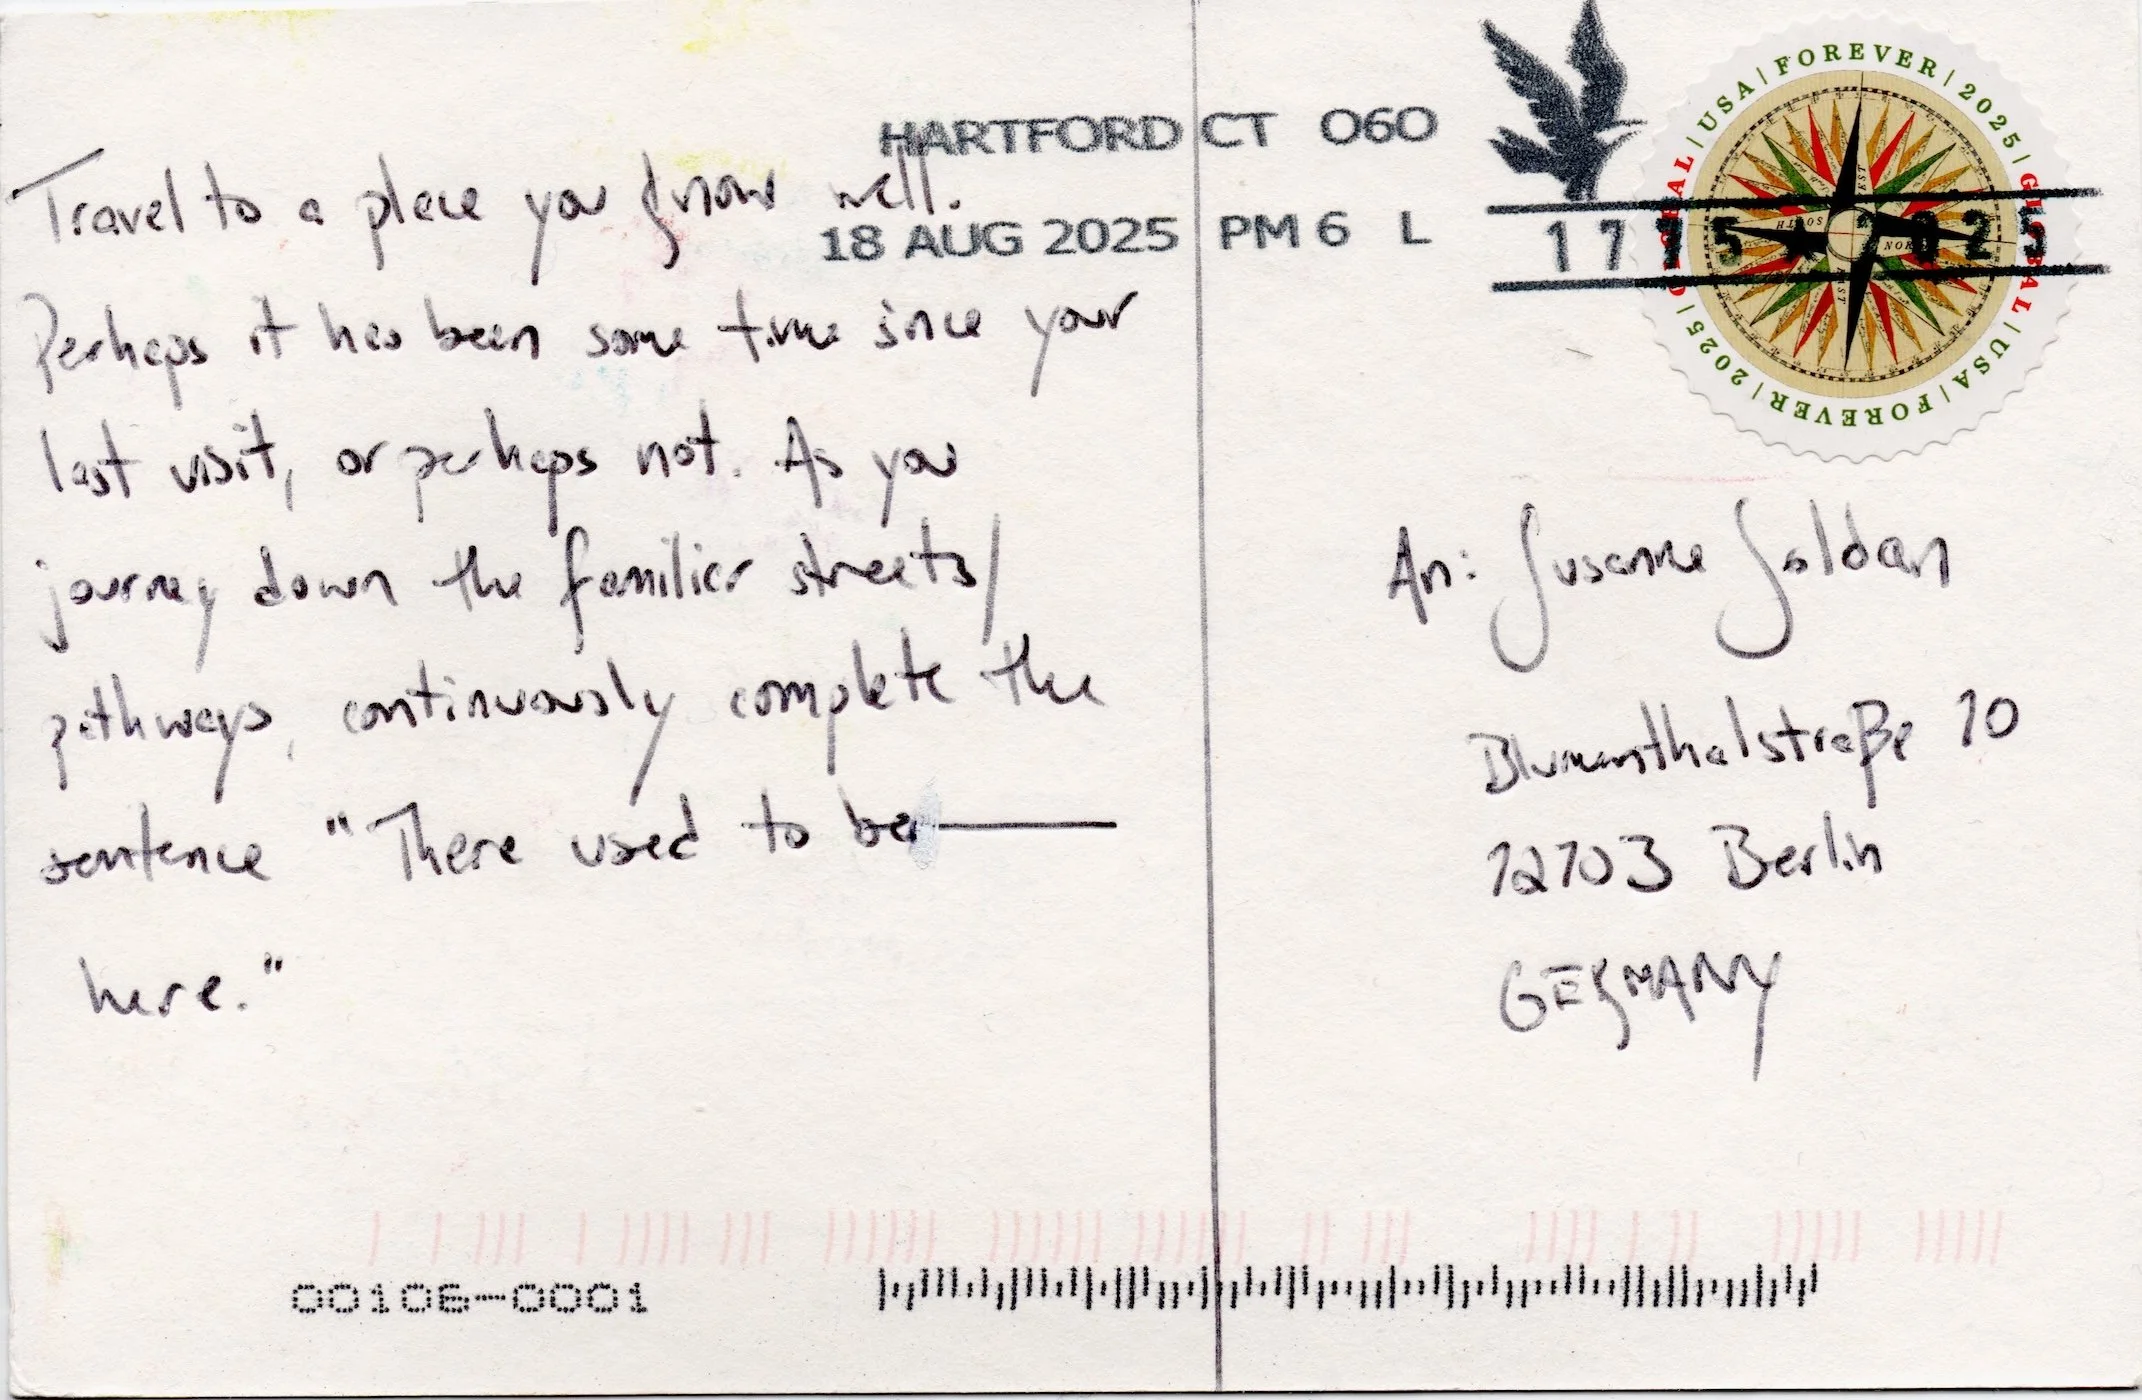 HARTFORD CT 060
18 AUG 2025 PM 6 L
1775 ★ 2025
GLOBAL | USA | FOREVER | 2025 | GLOBAL | USA | FOREVER | 2025 |
Travel to a place you know well.
Perhaps it has been some time since your
last visit, or perhaps not. As you
journey down the familiar streets/
pathways, continuously complete the
sentence "There used to be ———
here."
An: Susanne Soldan
Blumenthalstraße 10
12103 Berlin
GERMANY
00106-0001